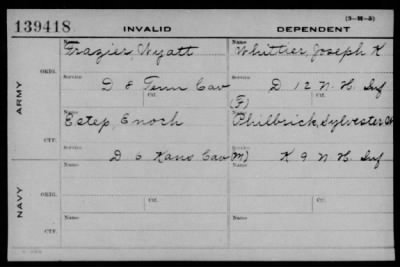 (3-M-5)
139418 INVALID DEPENDENT
Name Name
Frazier, Wyatt Whittier, Joseph K
ARMY
ORIG. Service Ctf. Service Ctf.
D 8 Tenn Cav D 12 N. H. Inf
Name (F)
Estep, Enoch Philbrick, Sylvester
CTF. Service Service
D 6 Kans Cav (M) K 9 N H. Inf
NAVY
Name Name
ORIG. Service Ctf. Service Ctf.
Name Name
CTF. Service Service